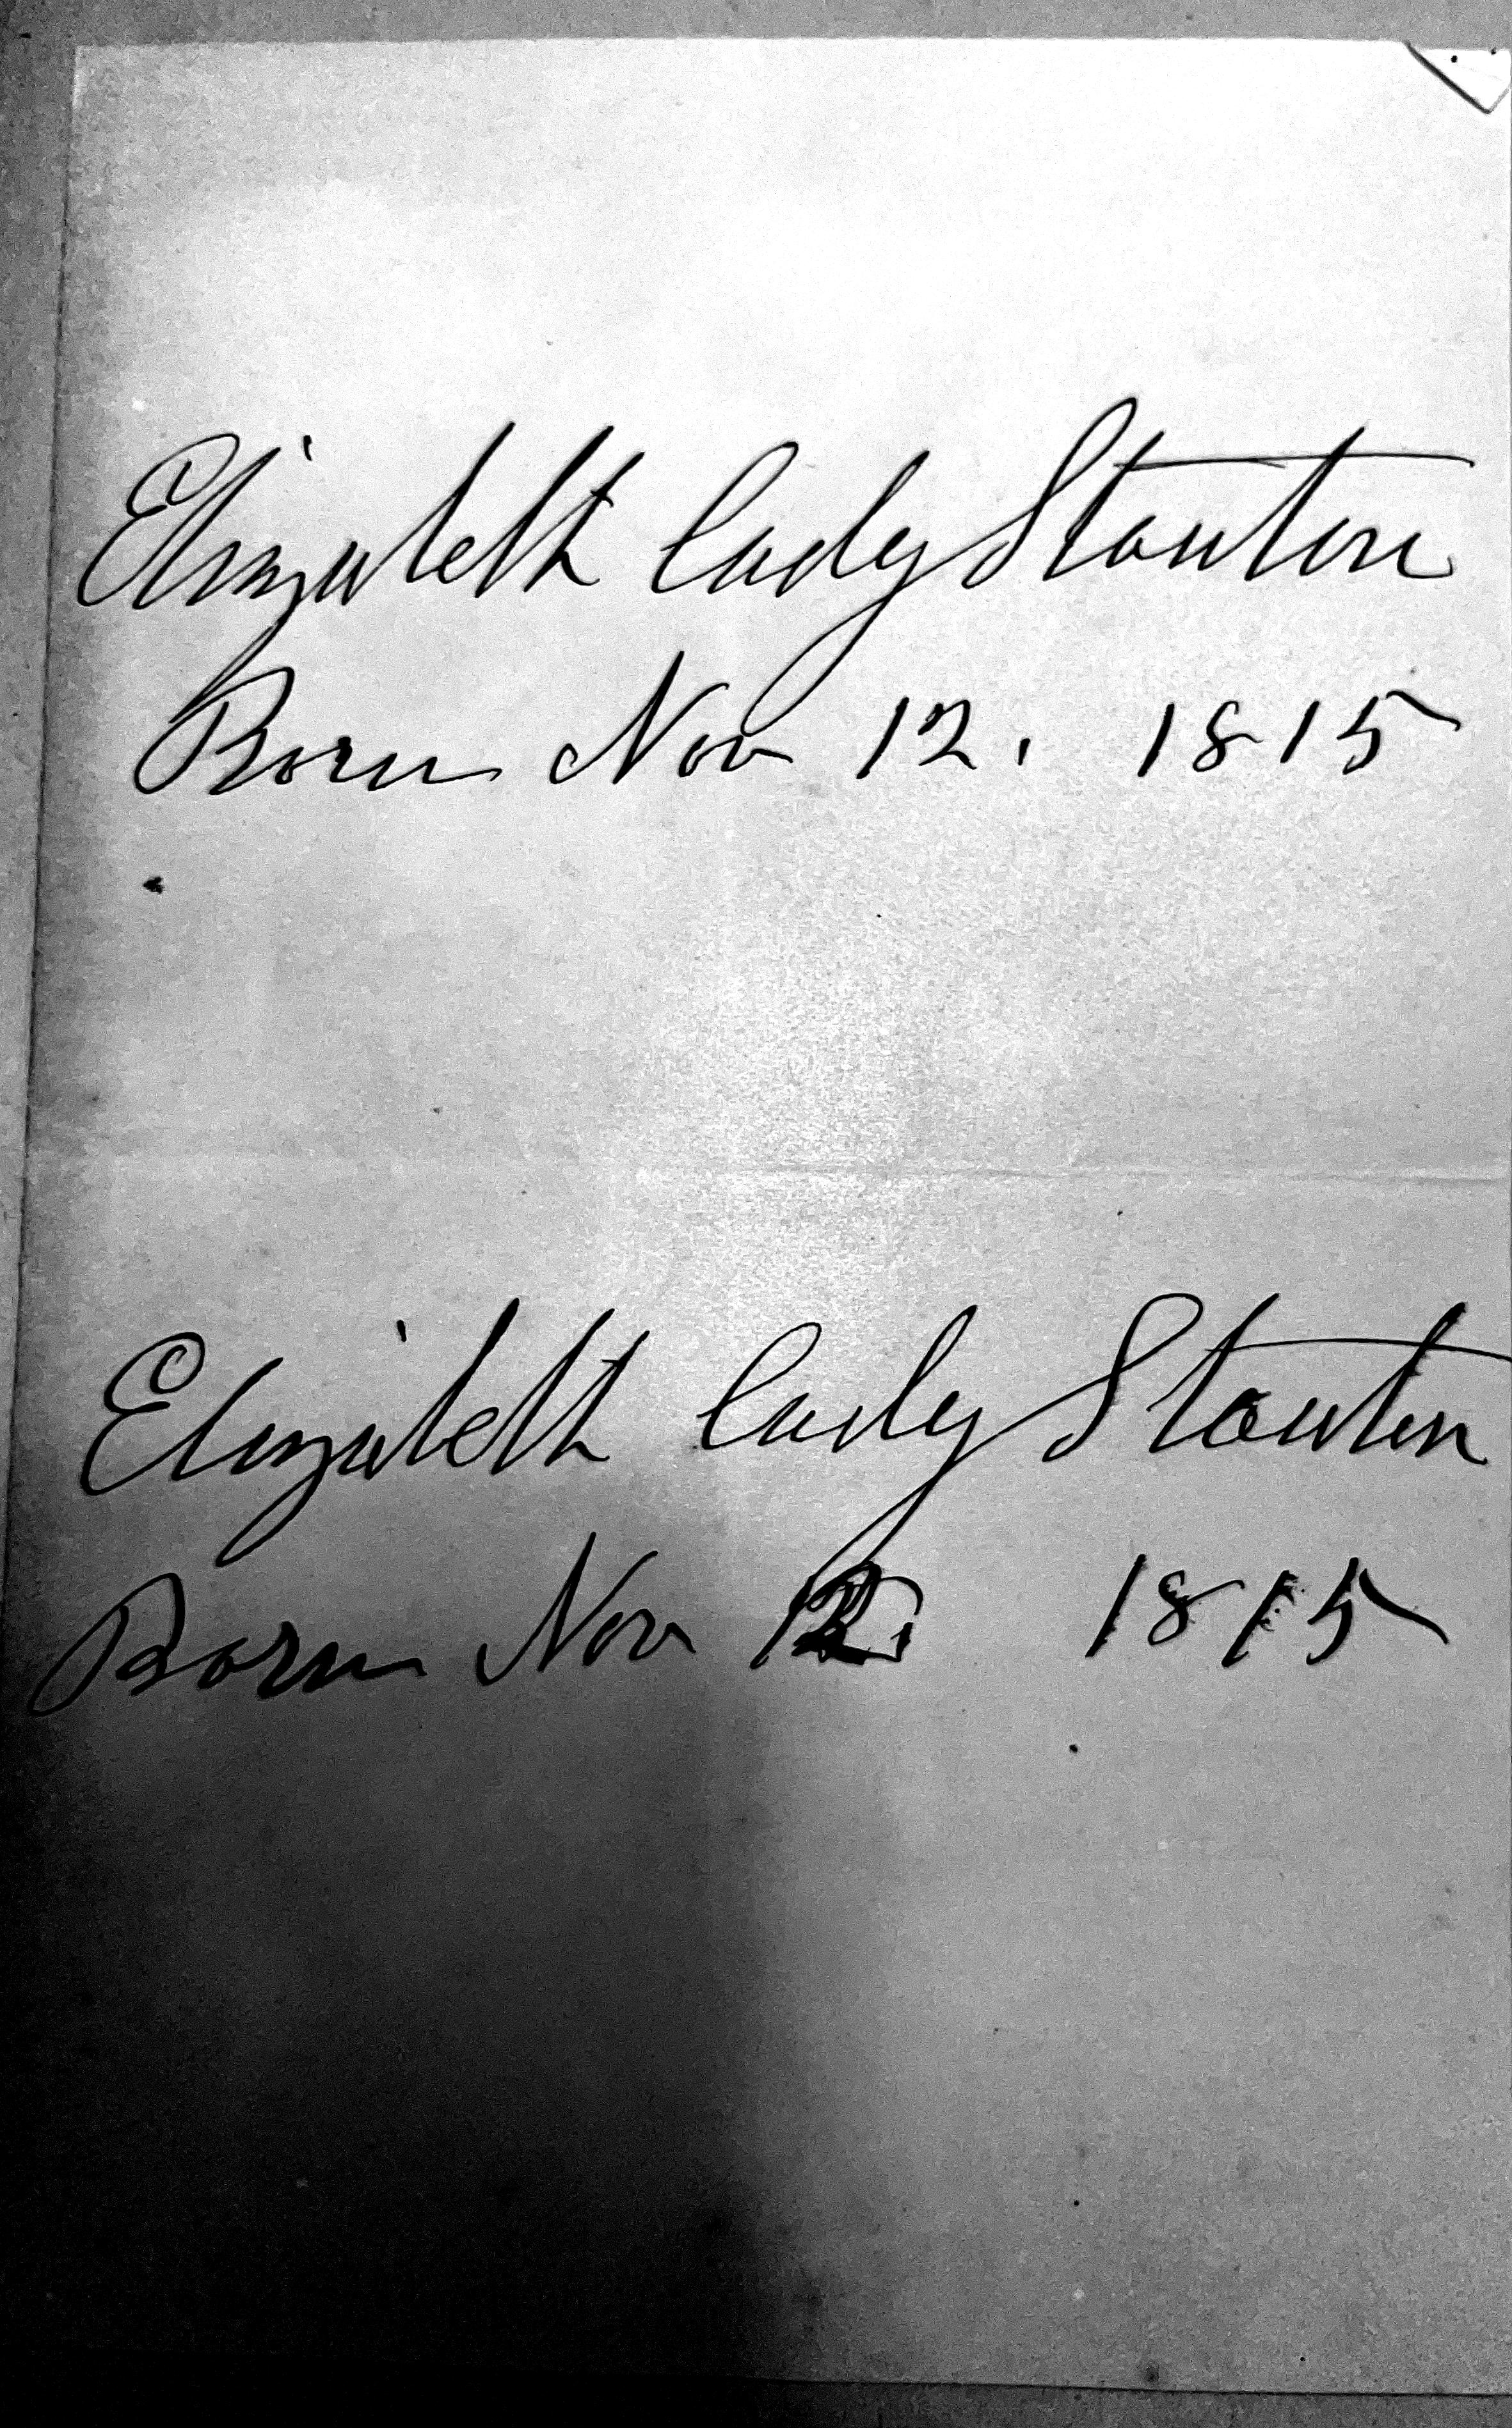 Elizabeth Cady Stanton
Born Nov 12. 1815
Elizabeth Cady Stanton
Born Nov 12. 1815